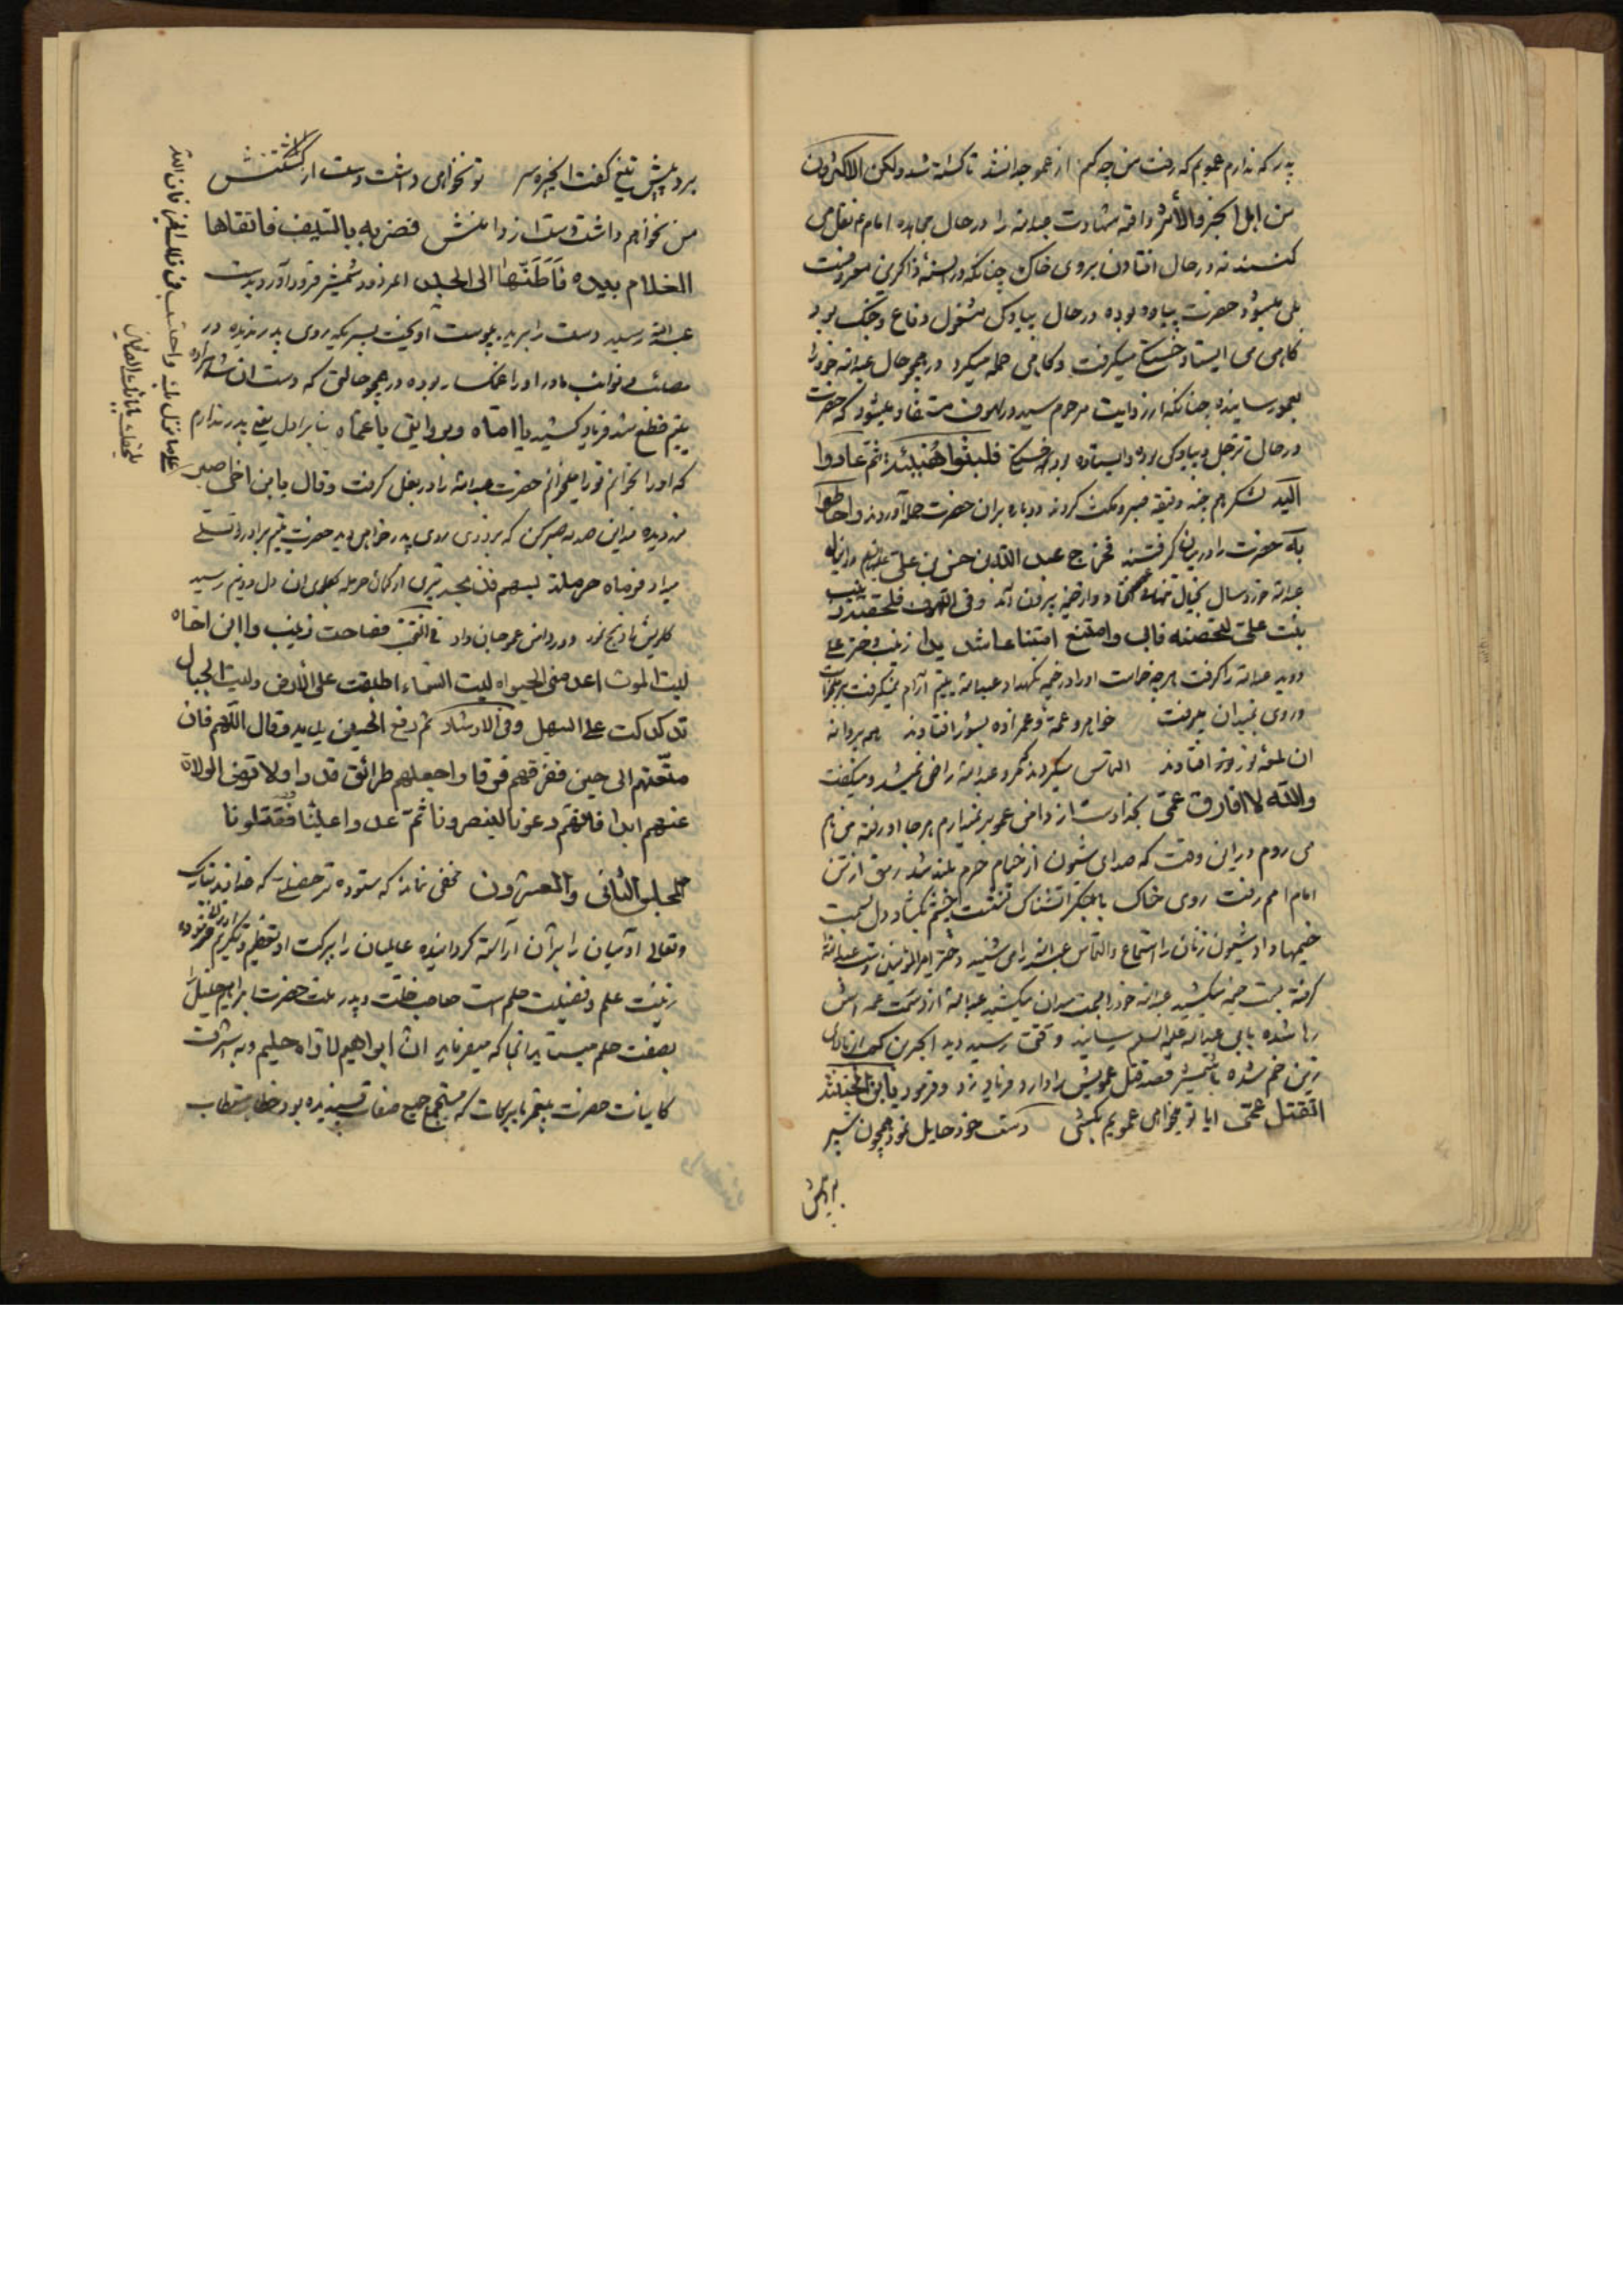 پدر که ندارم عمویم که رفت من چه کنم از عمو جدا نشد تا کشته شد ولکن الاکثرون
من اهل الخبر والأثر واقعه شهادت عبدالله را در حال مجاهده امام ع نقل می
کنند نه در حال افتادن بروی خاک چنانکه در السنهٔ ذاکرین معروفست
بلی میشود حضرت پیاده بوده در حال پیادگی مشغول دفاع و جنگ بود
گاهی می ایستاد خستگی میگرفت و گاهی حمله میکرد در همچو حال عبدالله خود را
بعمو رسانیده چنانکه از روایت مرحوم سید در لهوف مستفاد میشود که حضرت
در حالی ترجل و پیادگی بوده و ایستاده بود خستگی فلبثوا هنیئة ثم عادوا
الیه لشکر هم چند دقیقه صبر و مکث کردند دوباره بران حضرت حمله آوردند واحاطوا
به حضرت را در میان گرفتند فخرج عبدالله بن حسن بن علی علیهم
عبدالله خورد سال بخیال از خیمه بیرون آمد وفی اللهوف فلحقته زینب
بنت علی لتحبسه فابی وامتنع امتناعا شدیدا زینب دختر علی
دوید عبدالله را گرفت هرچه خواست او را در خیمه نگهدارد عبدالله یتیم آرام نمیگرفت
و روی بمیدان میرفت خواهر و عمه و عمزاده بشور افتادند همه پروانه
ان شمع افتادند التماس میکردند مگر عبدالله راضی نمیشد و میگفت
والله لا افارق عمی بخدا دست از دامن عمو بر نمیدارم هرجا او رفته من هم
می روم در این وقت که صدای شیون از خیام حرم بلند شد رمق از تن
امام امم رفت روی خاک با جگر چشم بگشاد دل بسمت
خیمها و او شیون زنان را استماع والتماس عبدالله را می شنید دختر امیرالمؤمنین دست عبدالله
گرفته بسمت خیمه میکشید عبدالله خود را بسمت میدان میکشید عبدالله از دست عمه اش
رها شده بابی عبدالله علیه السلم رسانید وقتی رسید دید ابجر بن کعب از بالای
زین خم شده با شمشیر قصد قتل عمویش را دارد فریاد زد و فرمود یابن الخبیثة
اتقتل عمی ایا تو میخواهی عمویم بکشی دست خود حایل نمود همچون سپر
برد پیش تیغ گفت ای خیره سر تو نخواهی داشت دست از کشتنش
من نخواهم داشت دست از دامنش فضربه بالسیف فاتقاها
الغلام بیده فاطنّها الی الجلد شمشیر فرود آورد بدست
عبدالله رسید دست را برید بپوست آویخت پسریکه روی پدر ندیده در
مصائب و نوائب مادر او را غمگسار بوده در همچو حالتی که دست ان شاهزاده
یتیم قطع شد فریاد کشید یا امّاه وبروایتی یا عمّاه بنا بر اول یعنی پدر ندارم
که او را بخوانم تو را میخوانم حضرت عبدالله را در بغل گرفت وقال یابن اخی اصبر
علی ما نزل بک واحتسب فی ذلک الخیر فان الله
یلحقک بابائک الصالحین
نور دیده بر این صدمه صبر کن که بزودی روی پدر خواهی دید حضرت یتیم برادر را تسلی
میداد فرماه حرملة بسهم فذبحه تیری از کمان حرمله بگلوی ان دل دونیم رسید
گلویش را ذبح نمود در دامن عمو جان داد فی المنتخب فصاحت زینب وا ابن اخاه
لیت الموت اعدمنی الحیواة لیت السماء اطبقت علی الأرض ولیت الجبال
تدکدکت علی السهل وفی الارشاد ثم رفع الحسین یدیه وقال اللهم فان
متّعتهم الی حین ففرقهم فرقا واجعلهم طرائق قددا ولا ترض الولاة
عنهم ابدا فانهم دعونا لینصرونا ثم عدوا علینا فقتلونا
المجلس الثانی والعشرون مخفی نماند که ستوده تر خصلت که خداوند تبارک
وتعالی آدمیان را بران آراسته گردانیده عالمیان را ببرکت او بتعظیم و تکریم
زینت علم و فضیلت حلم است صاحب خلّت و پدر ملت حضرت ابراهیم خلیل را
بصفت حلم میستاید انجا که میفرماید انّ ابراهیم لاوّاه حلیم و به اشرف
کاینات حضرت پیغمبر با برکات که مستجمع جمیع صفات پسندیده بود خطاب مستطاب